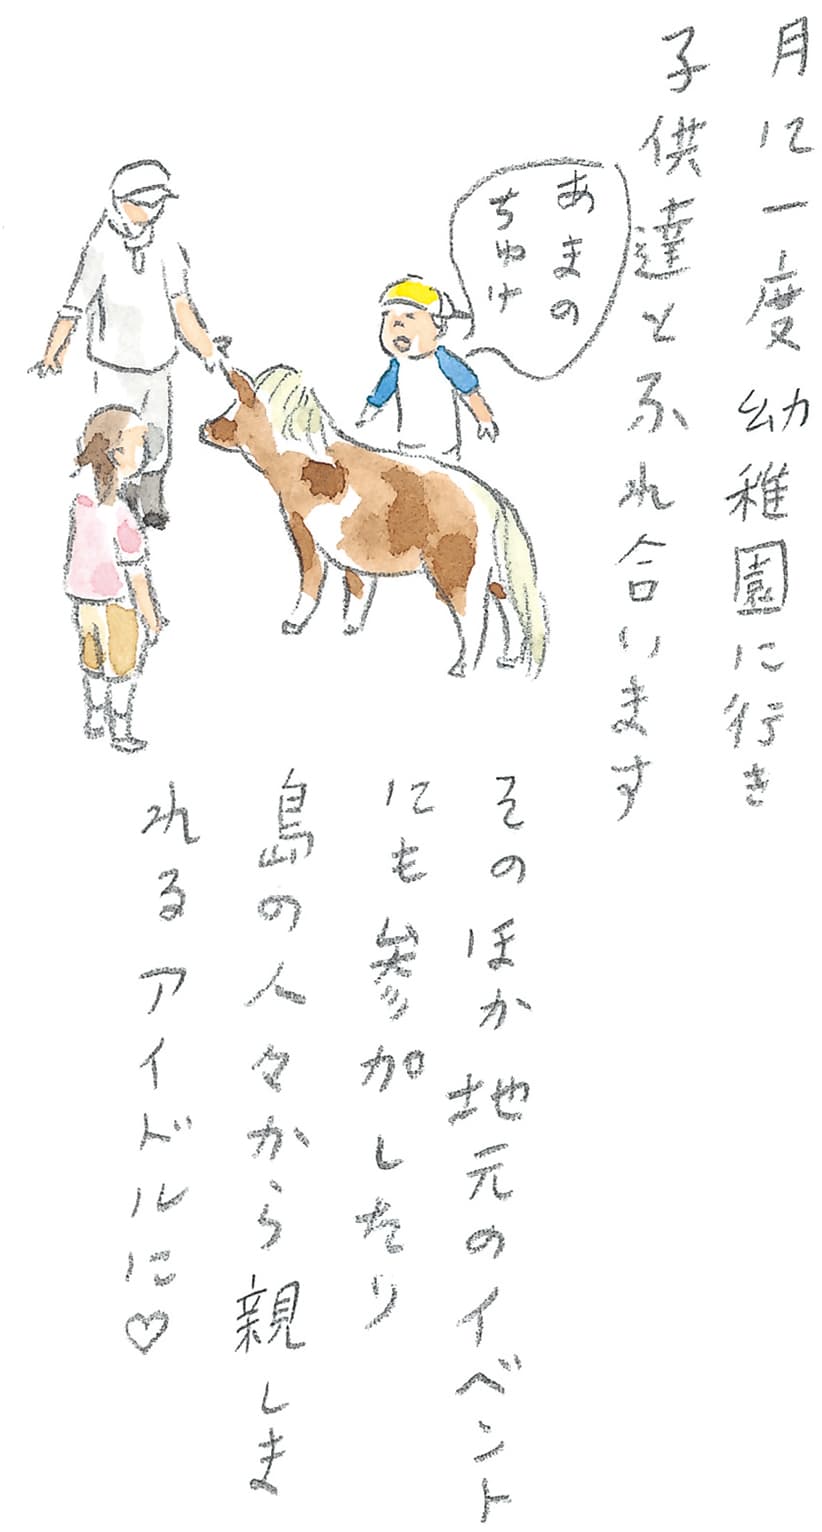 月に一度幼稚園に行き
子供達とふれ合います
あまの
ちゅけ
そのほか地元のイベント
にも参加したり
島の人々から親しま
れるアイドルに♡